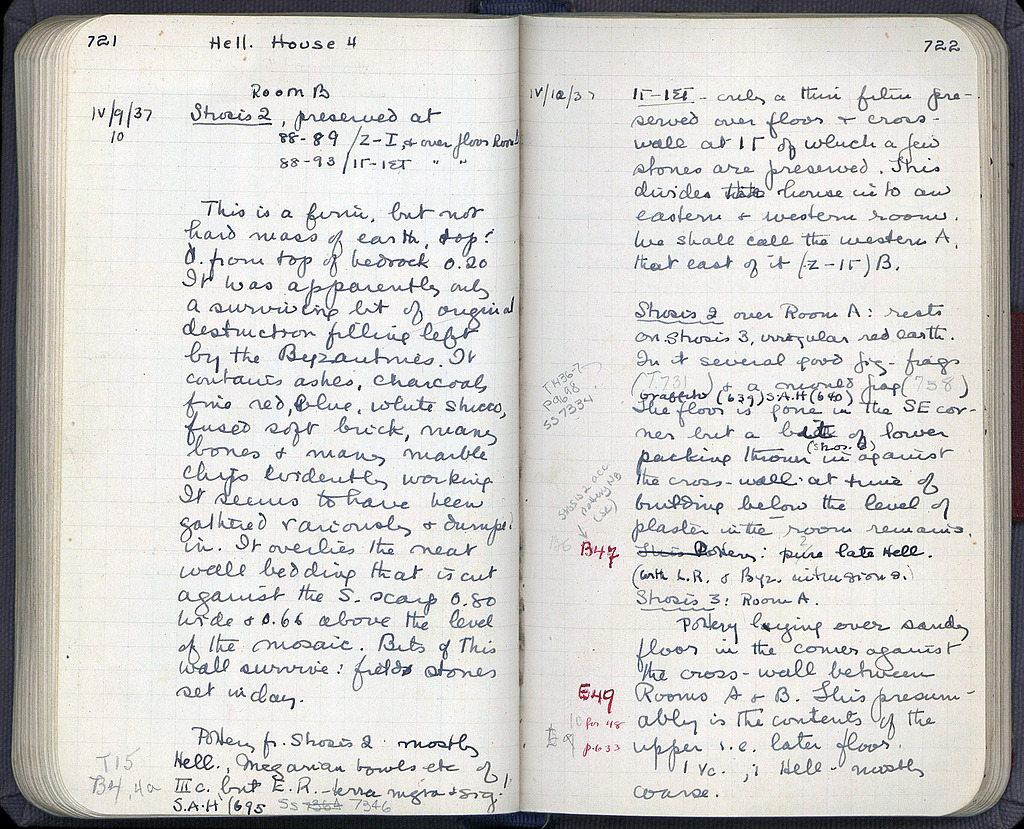 721 Hell. House 4
Room B
IV/9/37 Strosis 2, preserved at
10 88-89 /Z-I, & over floor Room
88-93 /ΙΓ-ΙΣΤ " "
This is a firm, but not
hard mass of earth, top:
d. from top of bedrock 0.20
It was apparently only
a surviving bit of original
destruction filling left
by the Byzantines. It
contains ashes, charcoal,
fine red, blue, white stucco,
fused soft brick, many
bones & many marble
chips evidently working.
It seems to have been
gathered variously & dumped
in. It overlies the neat
wall bedding that is cut
against the S. scarp 0.80
wide & 0.66 above the level
of the mosaic. Bits of This
wall survive: field stones
set in clay.
Pottery fr. Strosis 2 mostly
T15 Hell., Megarian bowls etc of
B4, 4a III c. but E.R. - terra nigra & sig.
S.A.H (695 SS 7364 7346
722
IV/10/37 ΙΓ-ΙΣΤ - only a thin film pre-
served over floor & cross-
wall at ΙΓ of which a few
stones are preserved. This
divides the house into an
eastern & western room.
We shall call the western A,
that east of it (Z-ΙΓ) B.
Strosis 2 over Room A: rests
on Strosis 3, irregular red earth.
In it several good fig. frags
TH367-
P9698
SS7334
(T.731 ) & a frag (758)
graffito (639) S.A.H (640)
The floor is gone in the SE cor-
ner but a bit of lower
(stros. 3)
packing thrown in against
the cross-wall at time of
building below the level of
plaster in the room remains.
Strosis 2 acc
pottery NB
B47 This Pottery: pure late Hell.
(with L.R. & Byz. intrusions.)
Strosis 3: Room A.
Pottery laying over sandy
floor in the corner against
the cross-wall between
E49 Rooms A & B. This presum-
10 for 48 ably is the contents of the
E9 p.633 upper i.e. later floor.
IV c. Hell - mostly
coarse.